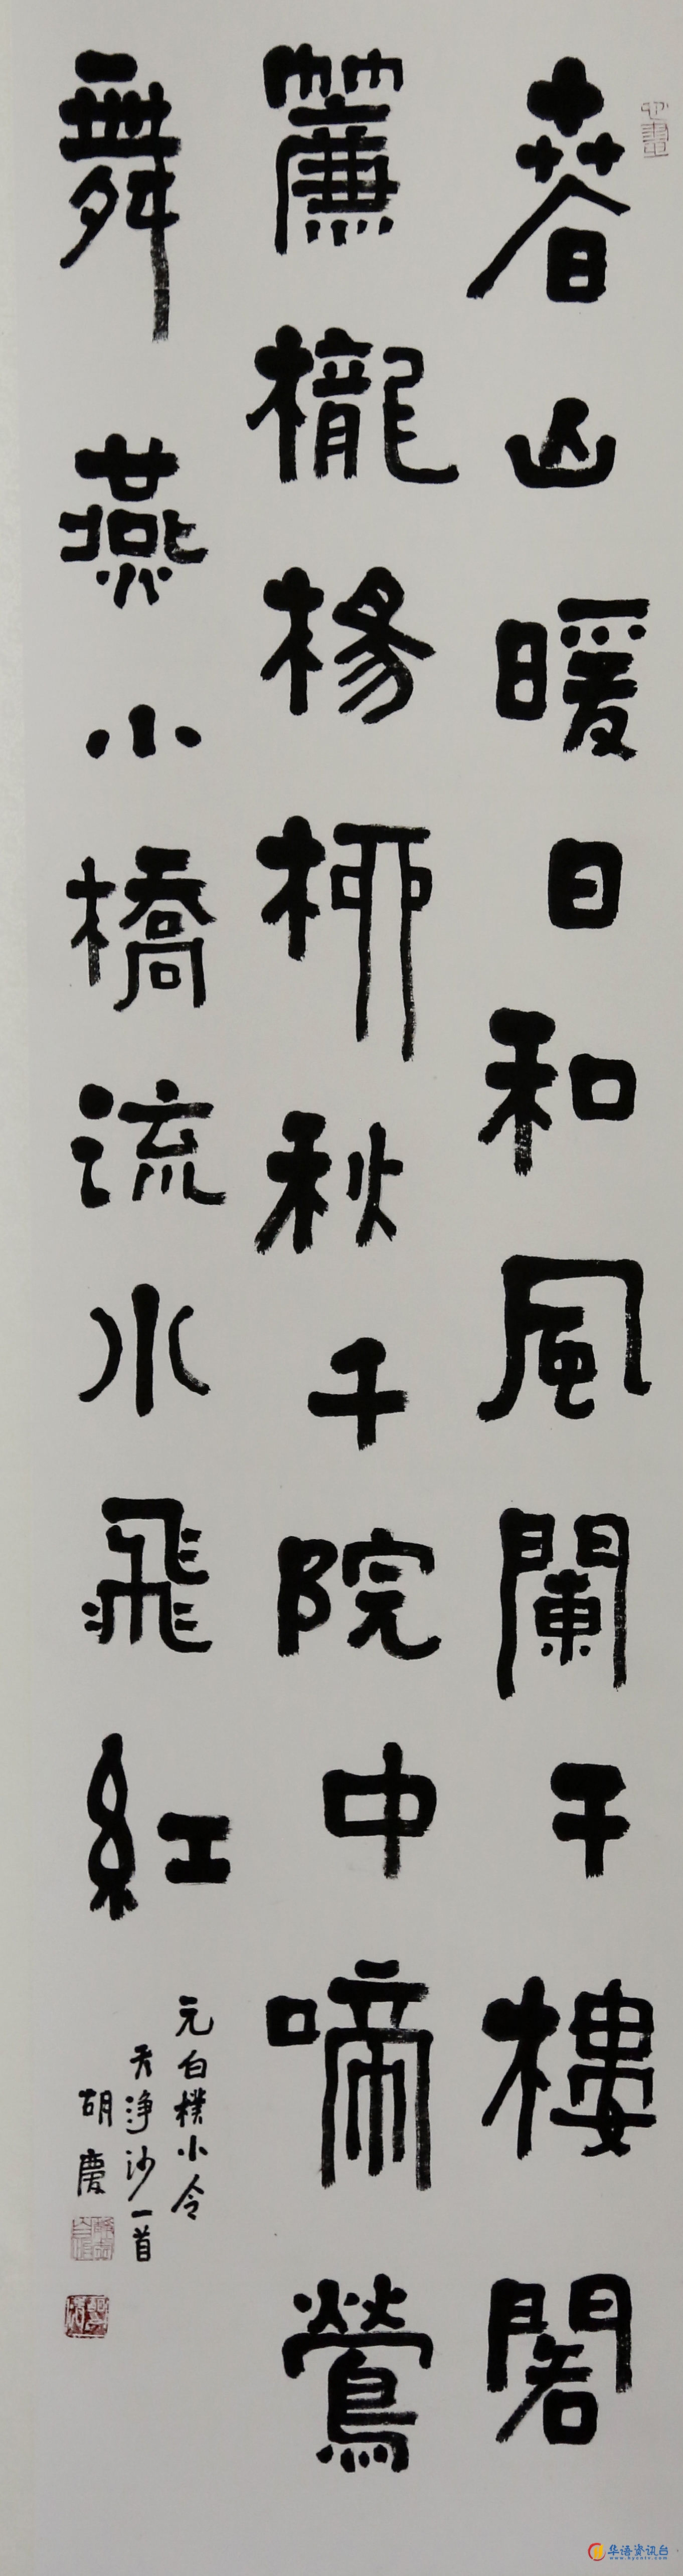 春山暖日和風闌干樓閣
簾櫳楊柳秋千院中啼鶯
舞燕小橋流水飛紅
元白樸小令
天淨沙一首
胡慶
华语资讯台
www.hyzxtv.com